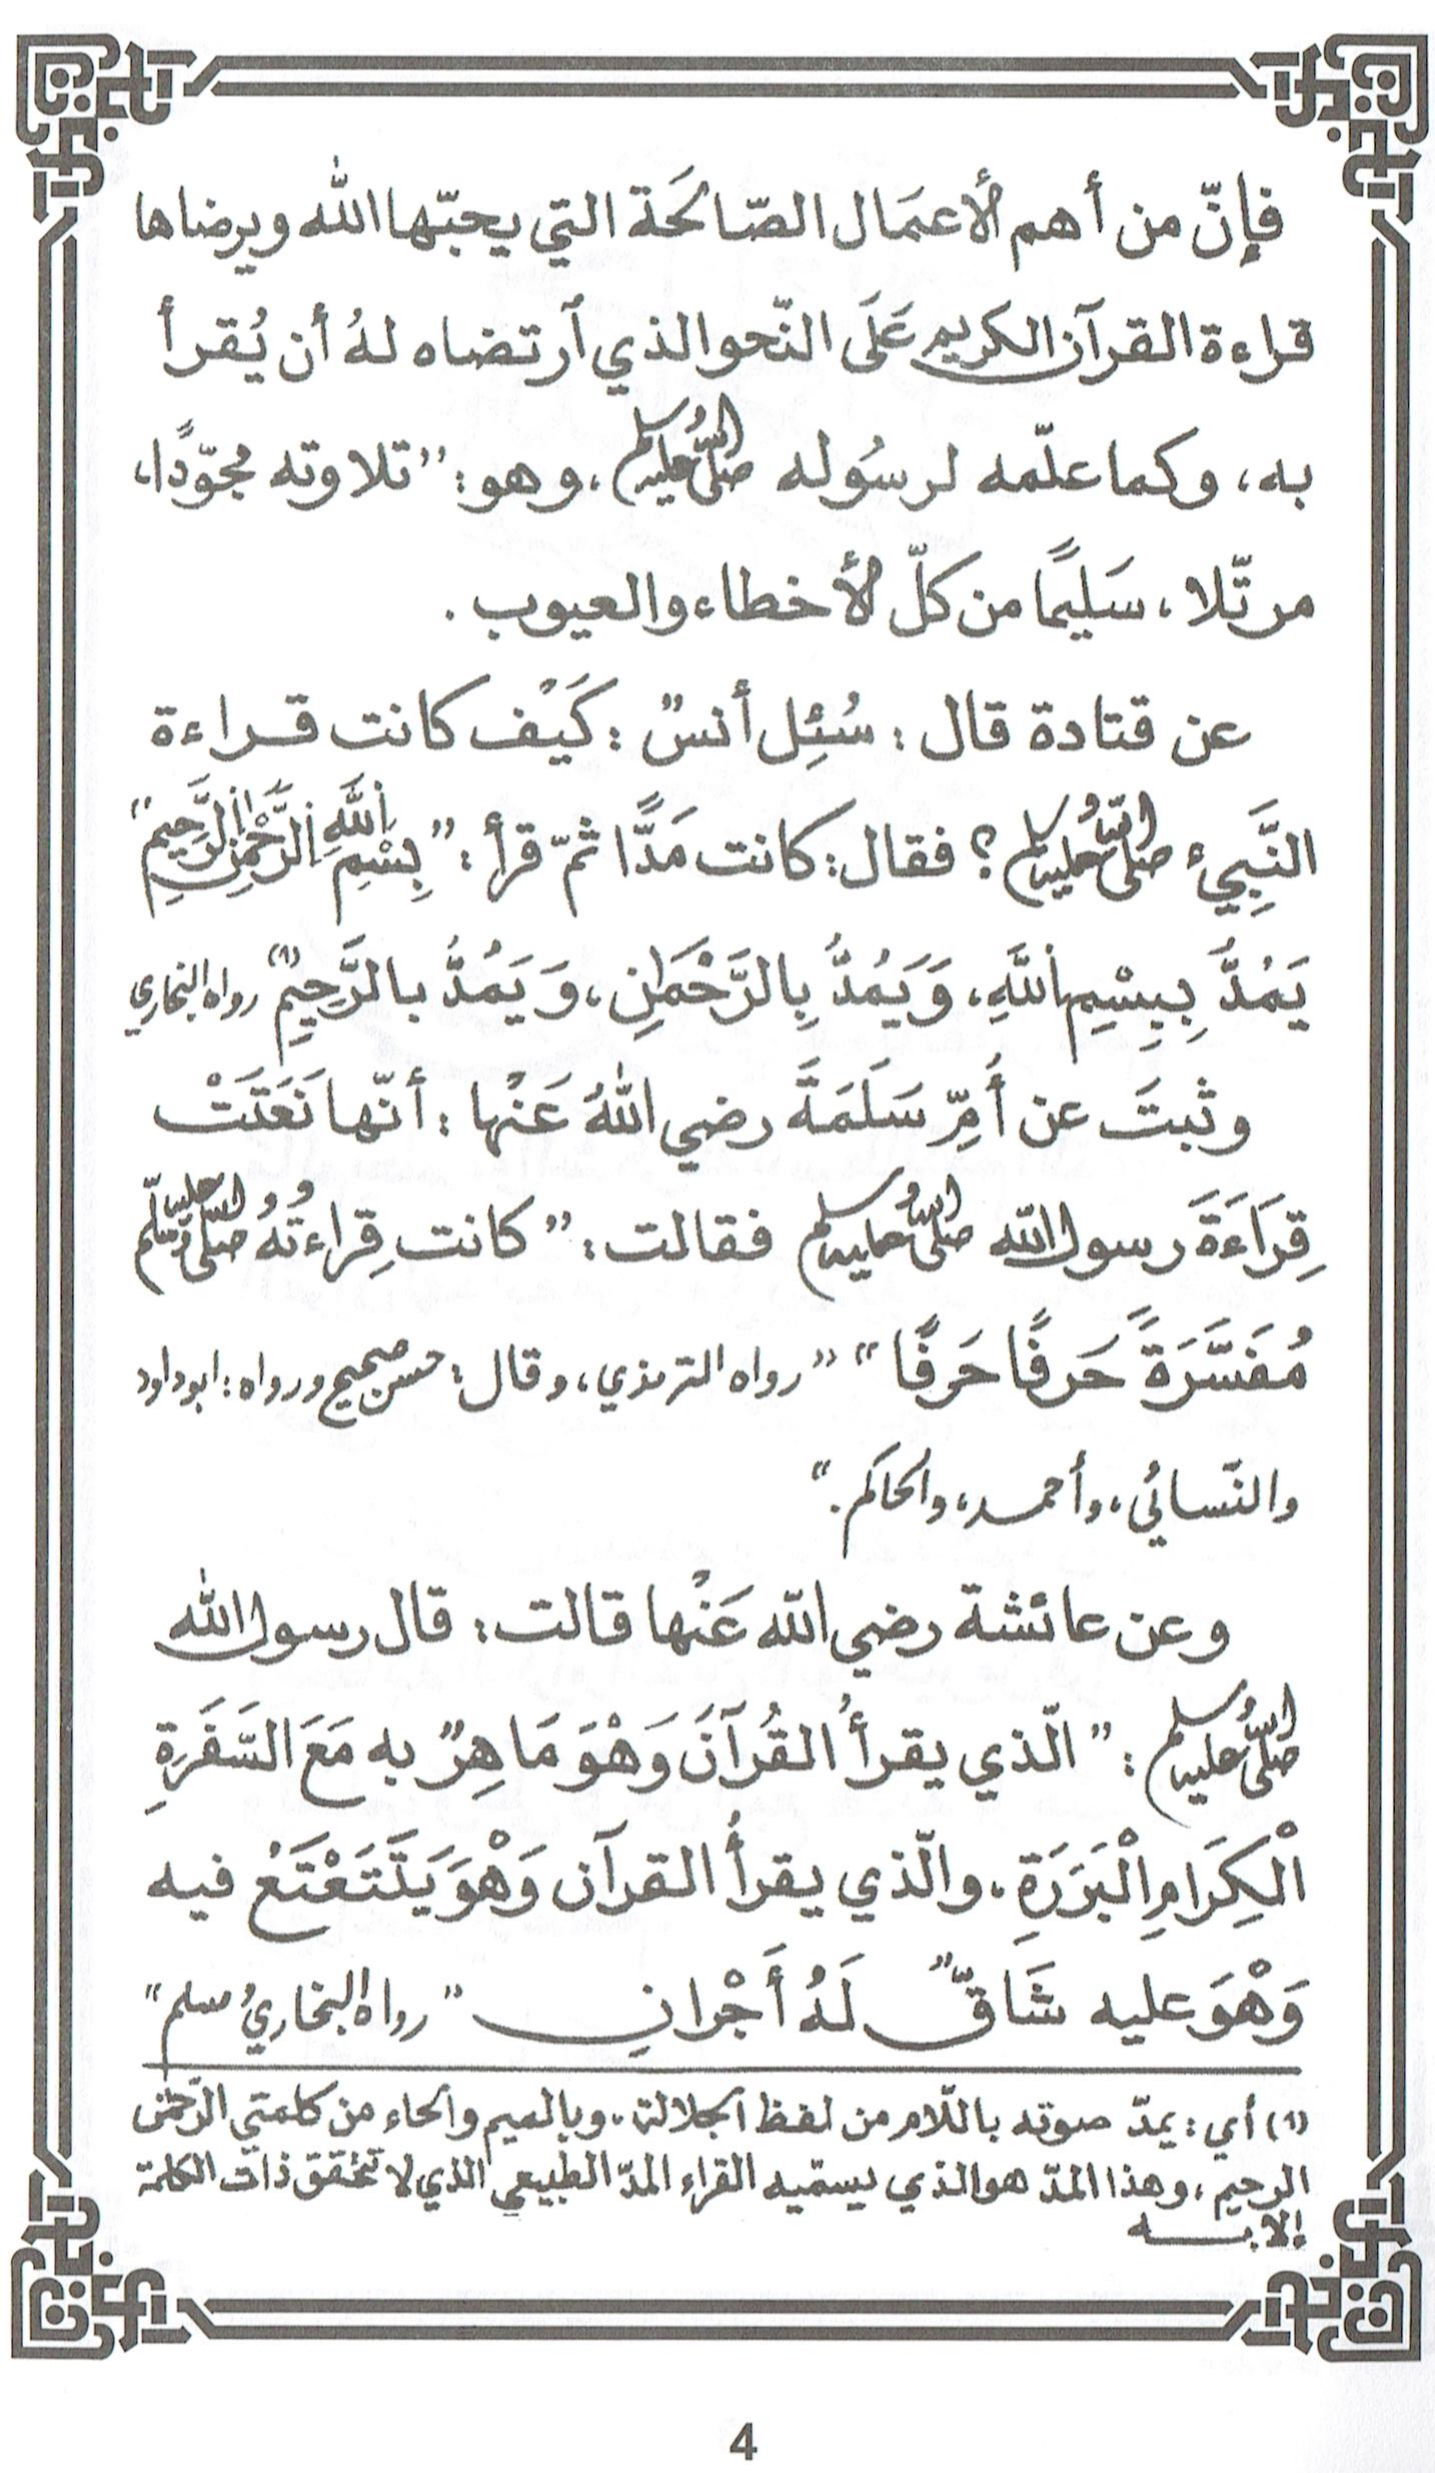 فإنّ من أهم الأعمَال الصّالحَة التي يحبّها الله ويرضاها
قراءة القرآن الكريم عَلَى النّحو الذي آرتضاه لهُ أن يُقرأ
به، وكما علّمه لرسُوله صلى الله عليه وسلم، وهو: "تلاوته مجوّدًا،
مرتّلا، سَليمًا من كلّ الأخطاء والعيوب.
عن قتادة قال: سُئِل أنسٌ: كَيْف كانت قراءة
النَّبِيء صلى الله عليه وسلم؟ فقال: كانت مَدًّا ثمّ قرأ: "بِسْمِ اللَّهِ الرَّحْمَنِ الرَّحِيمِ"
يَمُدُّ بِبِسْمِ اللَّهِ، وَيَمُدُّ بِالرَّحْمَنِ، وَيَمُدُّ بالرَّحِيمِ" (1) رواه البخاري
وثبتَ عن أُمِّ سَلَمَةَ رضي اللهُ عَنْها: أنّها نَعَتَتْ
قِرَاءَةَ رسول الله صلى الله عليه وسلم فقالت: "كانت قِراءتُهُ صلى الله عليه وسلم
مُفَسَّرَةً حَرفًا حَرفًا" "رواه الترمذي، وقال: حسن صحيح ورواه: ابوداود
والنّسائي، وأحمد، والحاكم."
وعن عائشة رضي الله عَنْها قالت: قال رسول الله
صلى الله عليه وسلم: "الّذي يقرأُ القُرآنَ وَهْوَ مَاهِرٌ به مَعَ السَّفَرَةِ
الْكِرَامِ الْبَرَرَةِ. والّذي يقرأُ القرآن وَهْوَ يَتَتَعْتَعُ فيه
وَهْوَ عليه شَاقٌّ لَهُ أَجْرانِ "رواه البخاريُ ومسلم"
(1) أي: يمدّ صوته باللّام من لفظ الجلالة، وبالميم والحاء من كلمتي الرّحمن
الرحيم، وهذا المدّ هو الذي يسمّيه القراء المدّ الطّبيعي الذي لا تتحقق ذات الكلمة
إلا بــه
4